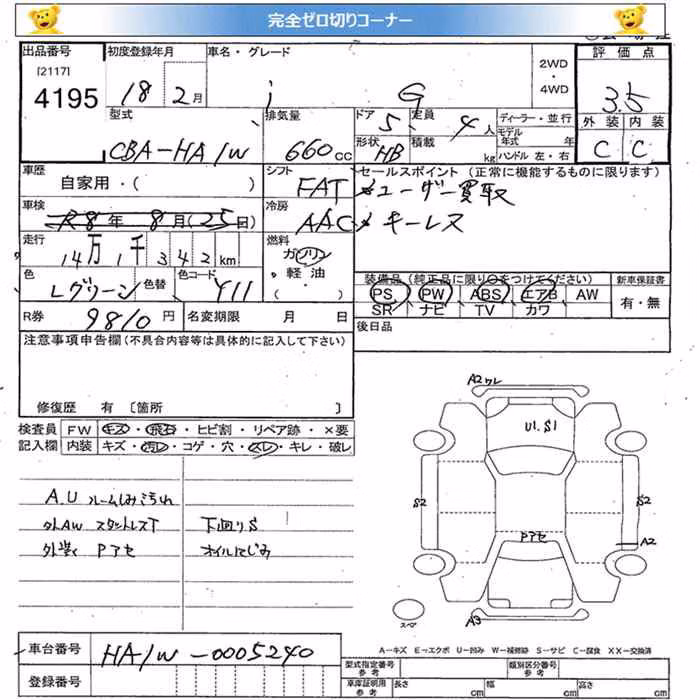 完全ゼロ切りコーナー
出品番号 初度登録年月 車名・グレード 評価点
[2117]
4195 18 2月 i G 2WD・4WD 3.5
型式 排気量 ドア 5 定員 4人 ディーラー・並行 外装 内装
CBA-HA1W 660cc 形状 HB 積載 kg モデル年式 年 C C
ハンドル 左・右
車歴 シフト セールスポイント (正常に機能するものに限ります)
自家用・( ) FAT ユーザー買取
車検 冷房
R8年 8月(25日) AAC キーレス
走行 燃料
14万1千342km ガソリン
色 色替 色コード 軽油
Lグリーン Y11 ( )
装備品(純正品に限り○をつけてください) 新車保証書
PS PW ABS エアB AW 有・無
SR ナビ TV カワ
R券 9810円 名変期限 月 日 後日品
注意事項申告欄(不具合内容等は具体的に記入して下さい)
修復歴 有 [箇所 ]
検査員 FW キズ・飛石・ヒビ割・リペア跡・×要
記入欄 内装 キズ・汚レ・コゲ・穴・スレ・キレ・破レ
A.U ルームしみ汚れ
外AW スタットレスT 下回りS
Pアセ オイルにじみ
A2ワレ
U1.S1
S2 S2
Pアセ A2
スペア A3
A－キズ E－エクボ U－凹み W－補修跡 S－サビ C－腐食 XX－交換済
車台番号 HA1W-0005240
登録番号
型式指定番号 参考 類別区分番号 参考
車庫証明用 参考 長さ cm 幅 cm 高さ cm